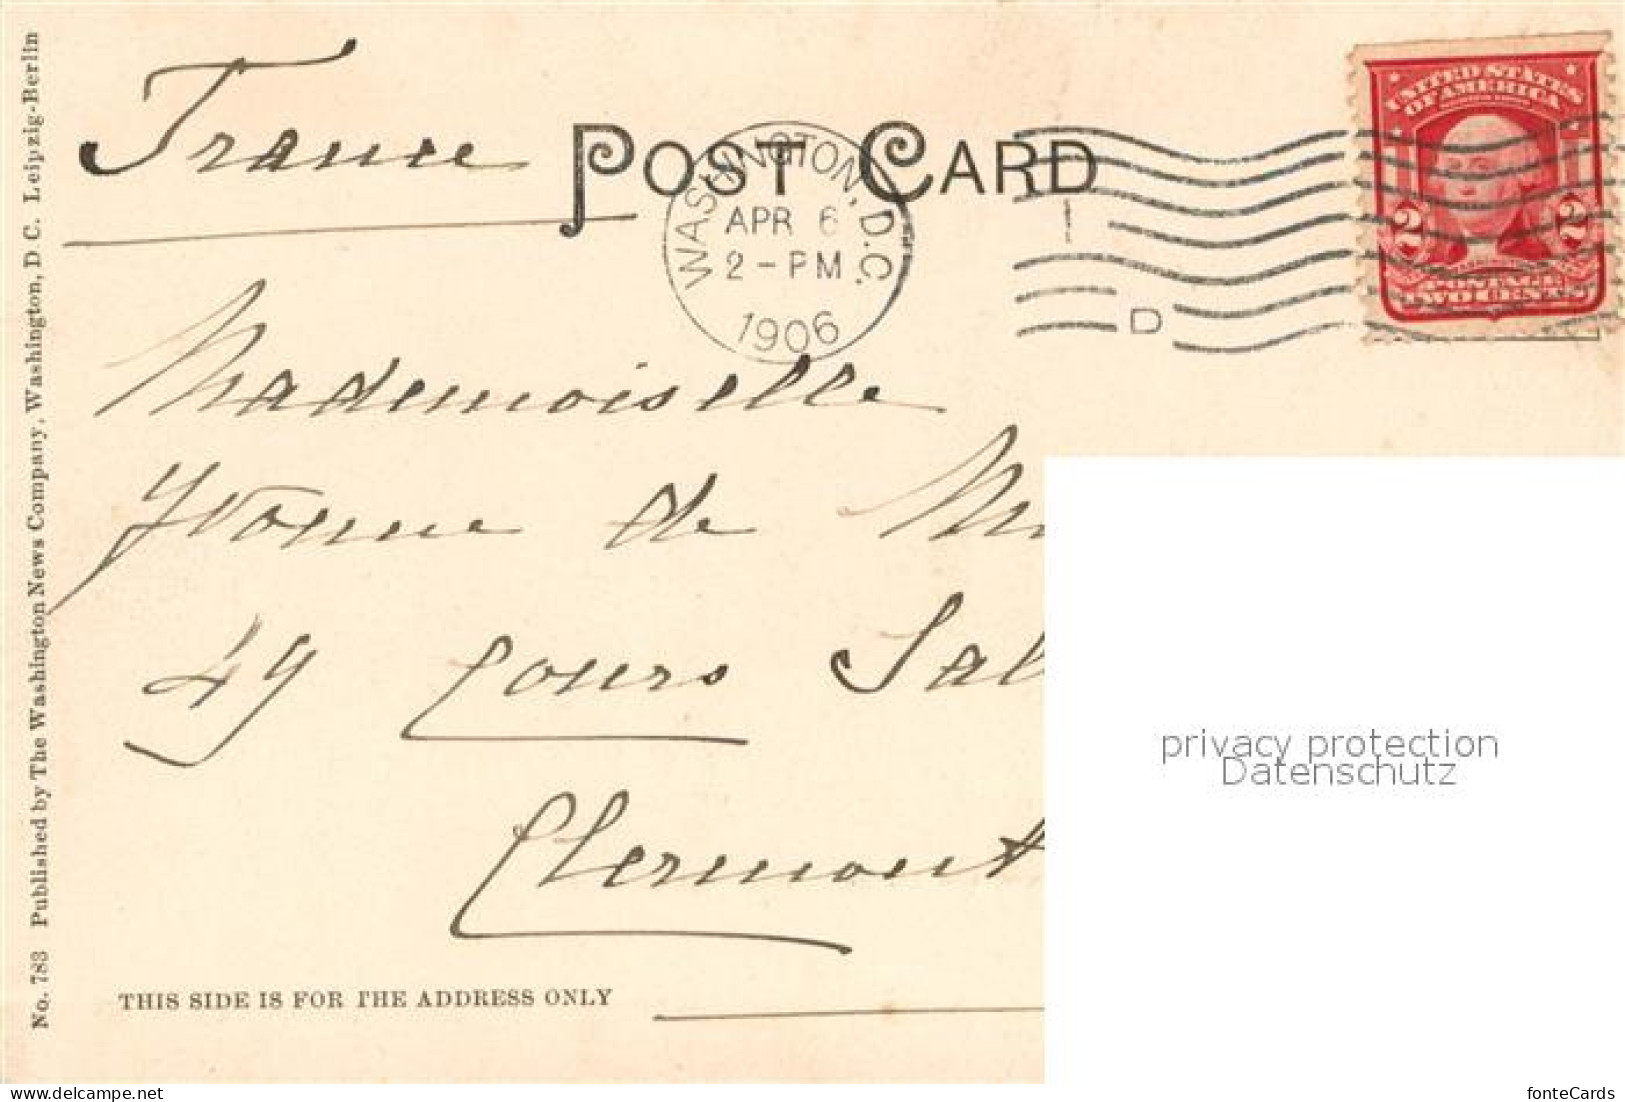 France
POST CARD
WASHINGTON, D.C.
APR 6
2-PM
1906
D
UNITED STATES
OF AMERICA
2 2
POSTAGE
TWO CENTS
Mademoiselle
Yvonne de
49 Cours Sal
Clermont
THIS SIDE IS FOR THE ADDRESS ONLY
No. 783 Published by The Washington News Company, Washington, D C. Leipzig-Berlin
privacy protection
Datenschutz
delcampe.net
fonteCards